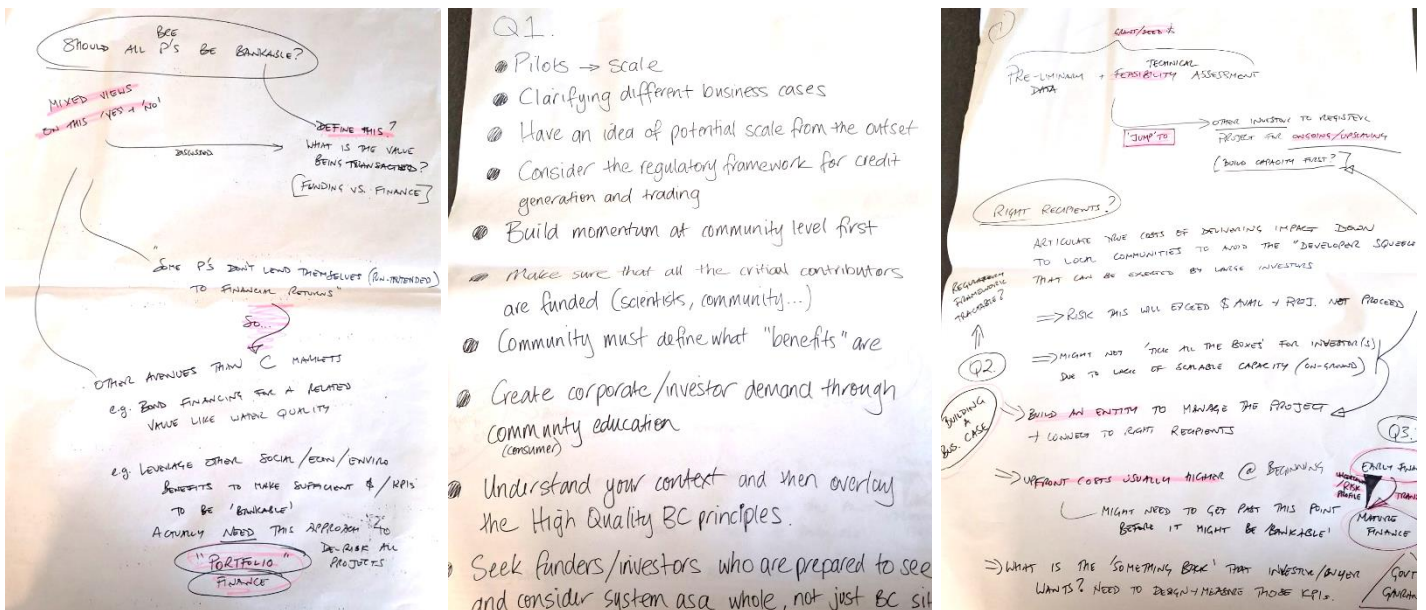 BRE
SHOULD ALL P'S BE BANKABLE?
MIXED VIEWS
ON THIS 'YES' + 'NO'
DISCUSSED
DEFINE THIS?
WHAT IS THE VALUE
BEING TRANSACTED?
[FUNDING VS. FINANCE]
"SOME P'S DON'T LEND THEMSELVES (PUN-INTENDED)
TO FINANCIAL RETURNS"
SO...
OTHER AVENUES THAN C MARKETS
e.g. BOND FINANCING FOR A RELATED
VALUE LIKE WATER QUALITY
e.g. LEVERAGE OTHER SOCIAL/ECON/ENVIRO
BENEFITS TO MAKE SUFFICIENT $/KPIS
TO BE 'BANKABLE'
ACTUALLY NEED THIS APPROACH TO
DE-RISK ALL
PROJECTS
"PORTFOLIO"
FINANCE
Q1.
Pilots → scale
Clarifying different business cases
Have an idea of potential scale from the outset
Consider the regulatory framework for credit
generation and trading
Build momentum at community level first
Make sure that all the critical contributors
are funded (scientists, community...)
Community must define what "benefits" are
Create corporate/investor demand through
community education
(consumer)
Understand your context and then overlay
the High Quality BC principles.
Seek funders/investors who are prepared to see
and consider system as a whole, not just BC
GRANT/SEED $
TECHNICAL
PRE-LIMINARY + FEASIBILITY ASSESSMENT
DATA
'JUMP' TO
OTHER INVESTOR TO REGISTER
PROJECT FOR ONGOING/UPSCALING
(BUILD CAPACITY FIRST?)
RIGHT RECIPIENTS?
ARTICULATE TRUE COSTS OF DELIVERING IMPACT DOWN
TO LOCAL COMMUNITIES TO AVOID THE "DEVELOPER SQUEEZE
THAT CAN BE EXERTED BY LARGE INVESTORS
REGULATORY
FRAMEWORK
TRACKABLE?
⇒ RISK THIS WILL EXCEED $ AVAIL + PROJ. NOT PROCEED
⇒ MIGHT NOT 'TICK ALL THE BOXES' FOR INVESTOR(S)
DUE TO LACK OF SCALABLE CAPACITY (ON-GROUND)
Q2.
BUILDING
A
BUS. CASE
⇒ BUILD AN ENTITY TO MANAGE THE PROJECT
+ CONNECT TO RIGHT RECIPIENTS
Q3
⇒ UPFRONT COSTS USUALLY HIGHER @ BEGINNING
MIGHT NEED TO GET PAST THIS POINT
BEFORE IT MIGHT BE 'BANKABLE'
EARLY
RISK
PROFILE
TRAN
MATURE
FINANCE
⇒ WHAT IS THE 'SOMETHING BACK' THAT INVESTOR/BUYER
WANTS? NEED TO DESIGN + MEASURE THOSE KPIS.
GOVT